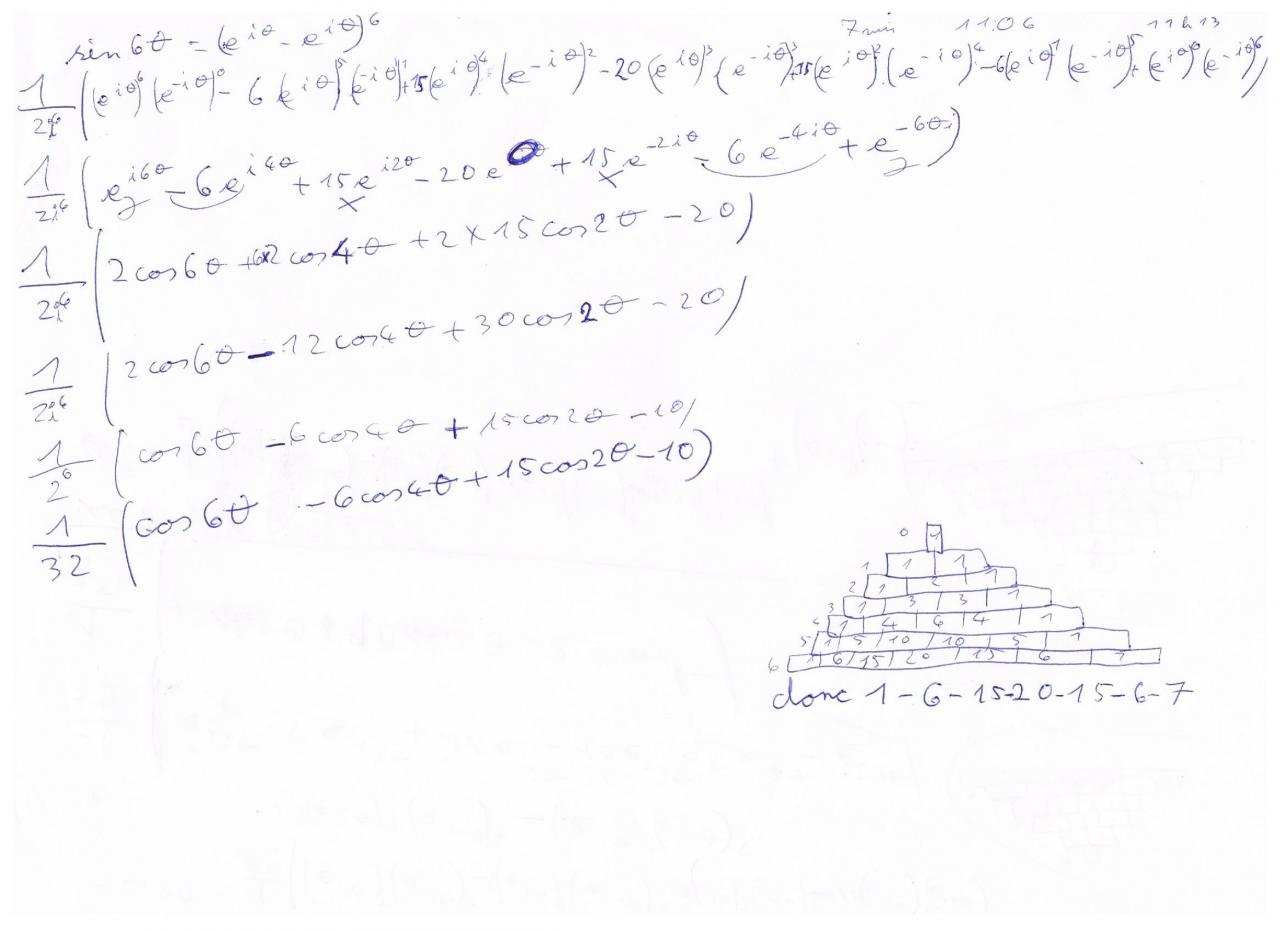 7 min 11:06 11h13
sin 6θ = (e^{iθ} - e^{iθ})^6
1/2i^6 ((e^{iθ})^6 (e^{-iθ})^0 - 6 (e^{iθ})^5 (e^{-iθ})^1 + 15 (e^{iθ})^4 (e^{-iθ})^2 - 20 (e^{iθ})^3 (e^{-iθ})^3 + 15 (e^{iθ})^2 (e^{-iθ})^4 - 6 (e^{iθ})^1 (e^{-iθ})^5 + (e^{iθ})^0 (e^{-iθ})^6)
1/2i^6 (e^{i6θ} - 6 e^{i4θ} + 15 e^{i2θ} - 20 e^0 + 15 e^{-2iθ} - 6 e^{-4iθ} + e^{-6θi})
1/2i^6 (2 cos 6θ + 6x2 cos 4θ + 2 x 15 cos 2θ - 20)
1/2i^6 (2 cos 6θ - 12 cos 4θ + 30 cos 2θ - 20)
1/2^6 (cos 6θ - 6 cos 4θ + 15 cos 2θ - 10)
1/32 (cos 6θ - 6 cos 4θ + 15 cos 2θ - 10)
0 1
1 1 1
2 1 2 1
3 1 3 3 1
4 1 4 6 4 1
5 1 5 10 10 5 1
6 1 6 15 20 15 6 1
donc 1 - 6 - 15 - 20 - 15 - 6 - 7